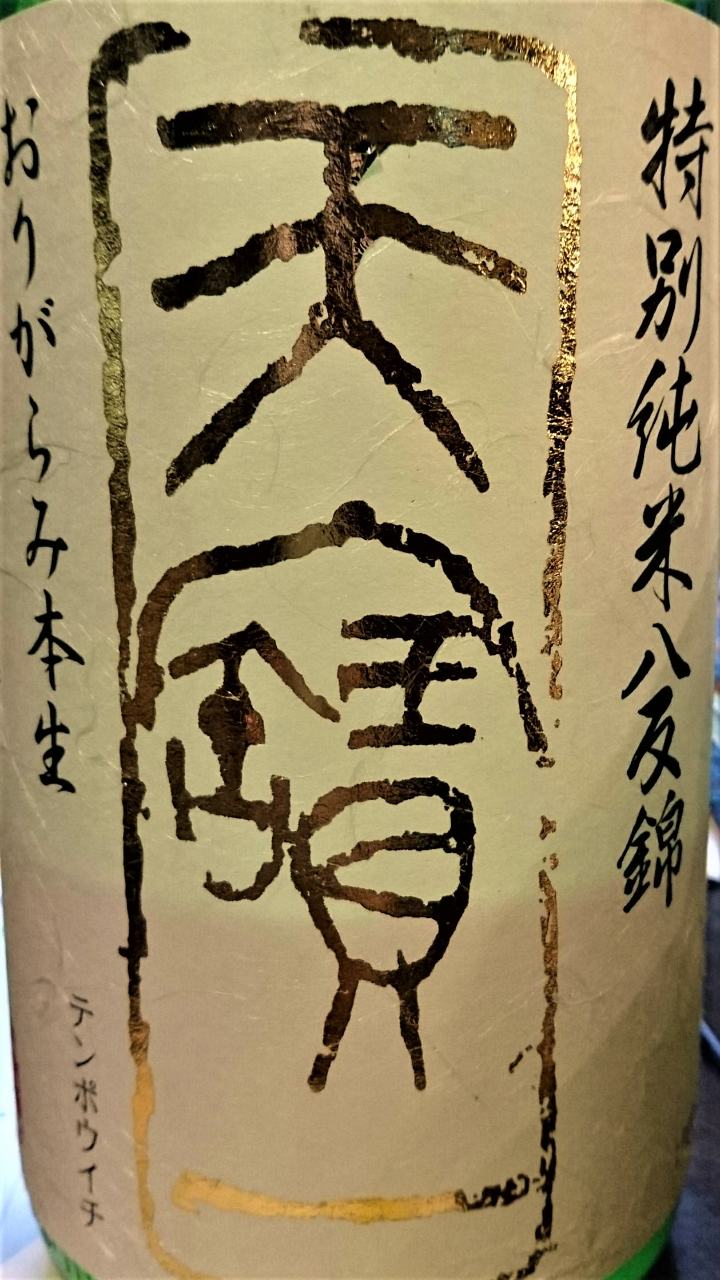 特別純米八反錦
天寶一
おりがらみ本生
テンポウイチ